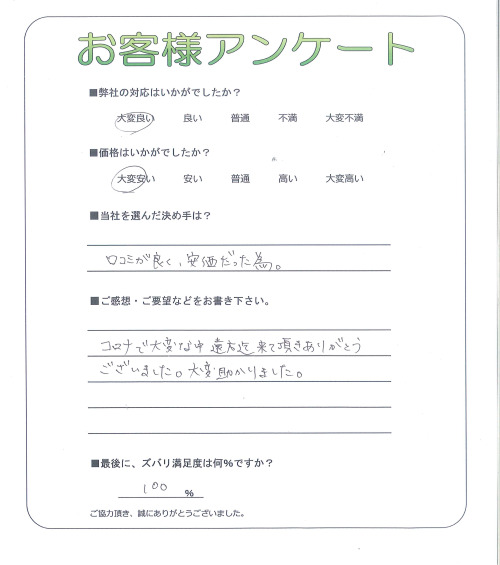 お客様アンケート
■弊社の対応はいかがでしたか？
大変良い 良い 普通 不満 大変不満
■価格はいかがでしたか？
大変安い 安い 普通 高い 大変高い
■当社を選んだ決め手は？
口コミが良く、安価だった為。
■ご感想・ご要望などをお書き下さい。
コロナで大変な中遠方迄来て頂きありがとう
ございました。大変助かりました。
■最後に、ズバリ満足度は何％ですか？
100 ％
ご協力頂き、誠にありがとうございました。